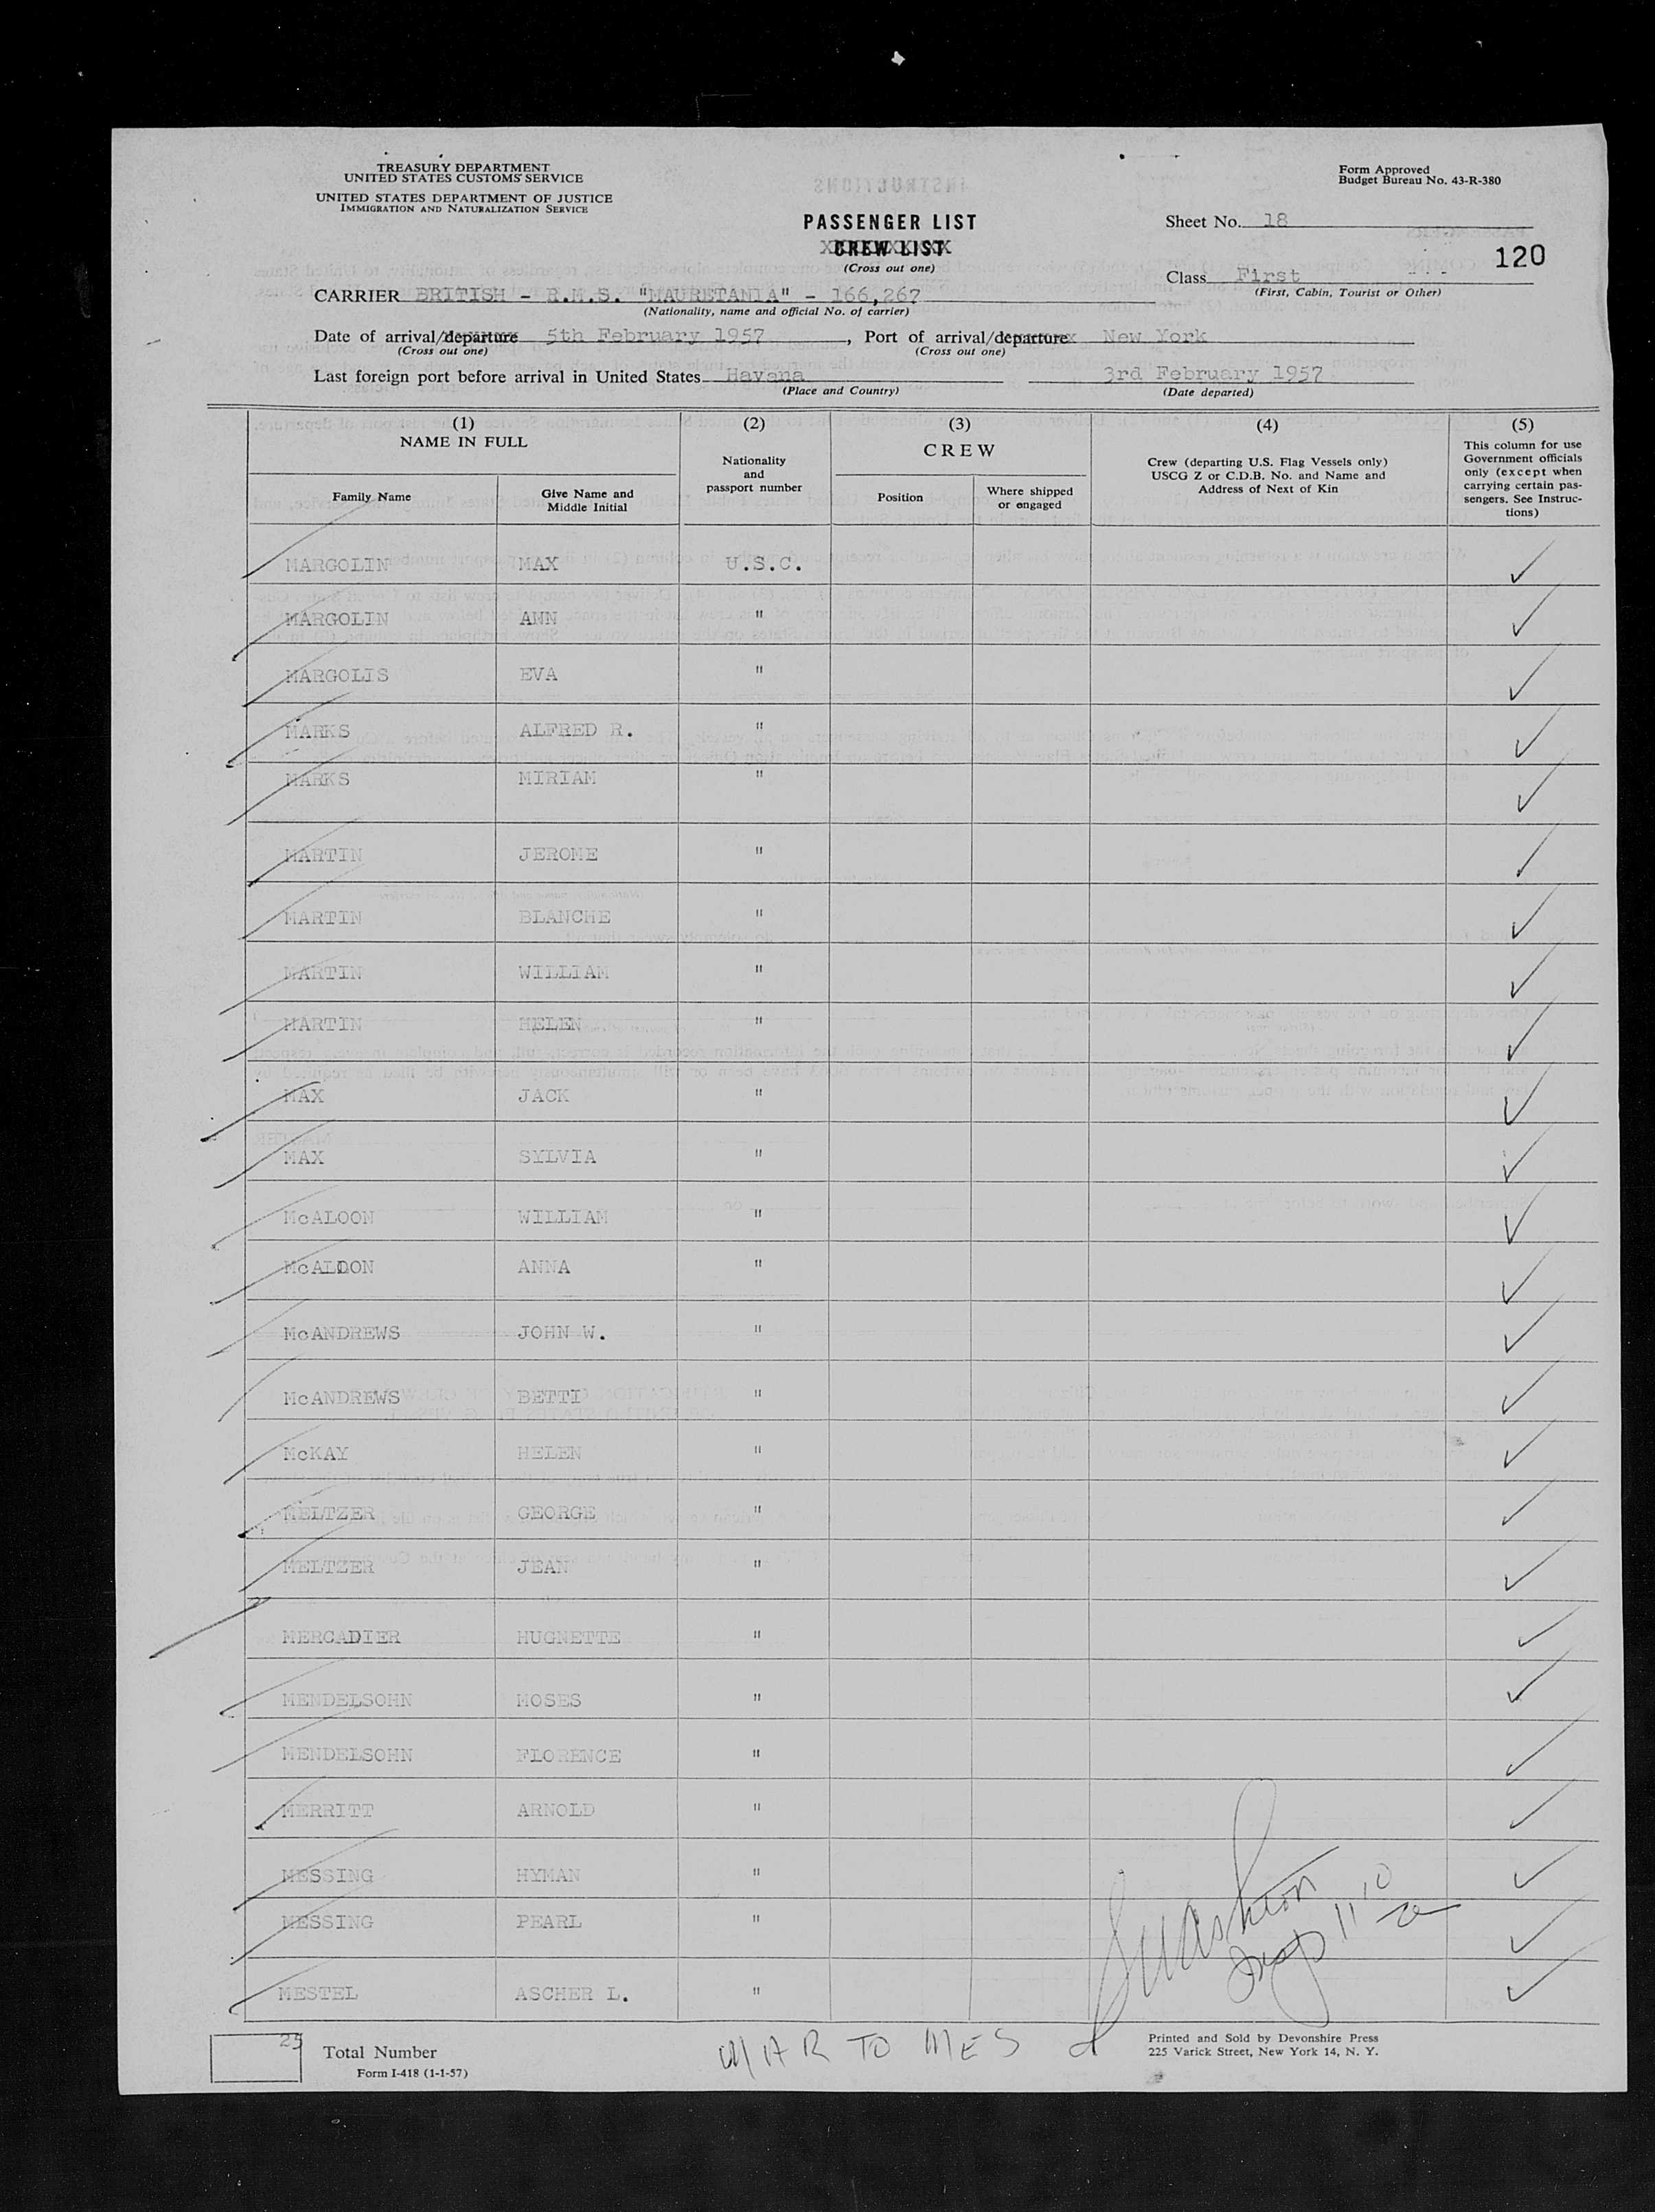 TREASURY DEPARTMENT
UNITED STATES CUSTOMS SERVICE
UNITED STATES DEPARTMENT OF JUSTICE
IMMIGRATION AND NATURALIZATION SERVICE
Form Approved
Budget Bureau No. 43-R-380
PASSENGER LIST
CREW LIST
(Cross out one)
Sheet No. 18
120
Class First
(First, Cabin, Tourist or Other)
CARRIER BRITISH - R.M.S. "MAURETANIA" - 166,267
(Nationality, name and official No. of carrier)
Date of arrival/departure 5th February 1957, Port of arrival/departure New York
(Cross out one) (Cross out one)
Last foreign port before arrival in United States Havana 3rd February 1957
(Place and Country) (Date departed)
(1) (2) (3) (4) (5)
NAME IN FULL
Family Name
Give Name and
Middle Initial
Nationality
and
passport number
CREW
Position
Where shipped
or engaged
Crew (departing U.S. Flag Vessels only)
USCG Z or C.D.B. No. and Name and
Address of Next of Kin
This column for use
Government officials
only (except when
carrying certain pas-
sengers. See Instruc-
tions)
MARGOLIN MAX U.S.C. ✓
MARGOLIN ANN " ✓
MARGOLIS EVA " ✓
MARKS ALFRED R. " ✓
MARKS MIRIAM " ✓
MARTIN JEROME " ✓
MARTIN BLANCHE " ✓
MARTIN WILLIAM " ✓
MARTIN HELEN " ✓
MAX JACK " ✓
MAX SYLVIA " ✓
McALOON WILLIAM " ✓
McALOON ANNA " ✓
McANDREWS JOHN W. " ✓
McANDREWS BETTI " ✓
McKAY HELEN " ✓
MELTZER GEORGE " ✓
MELTZER JEAN " ✓
MERCADIER HUGNETTE " ✓
MENDELSOHN MOSES " ✓
MENDELSOHN FLORENCE " ✓
MERRITT ARNOLD " ✓
MESSING HYMAN " ✓
MESSING PEARL " ✓
MESTEL ASCHER L. " ✓
25 Total Number
Form I-418 (1-1-57)
MAR TO MES
Printed and Sold by Devonshire Press
225 Varick Street, New York 14, N. Y.